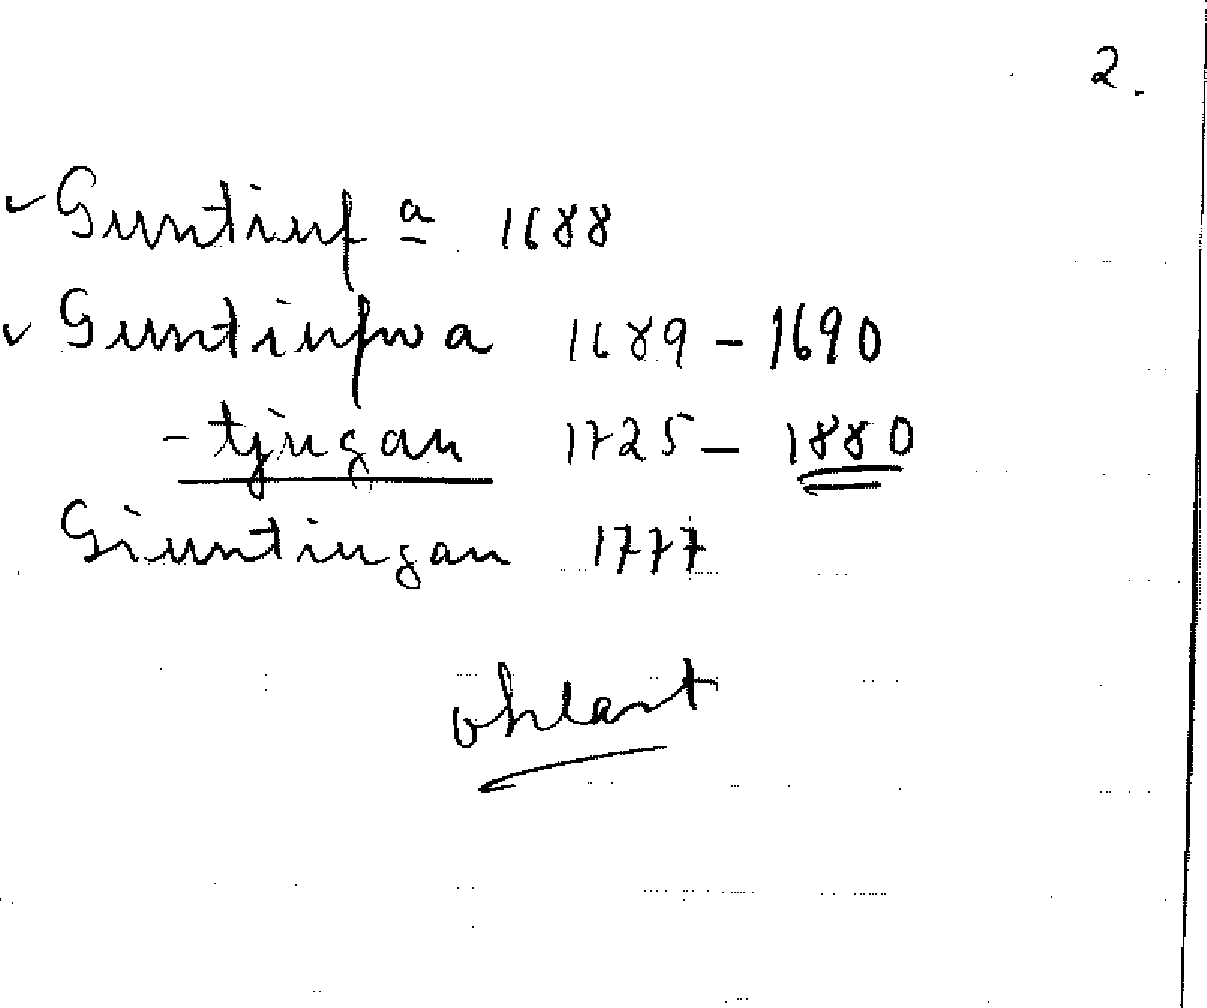 2.
Guntiuf a 1688
Guntiufwa 1689 - 1690
- tjugan 1725 - 1880
Giuntiugan 1777
oklart